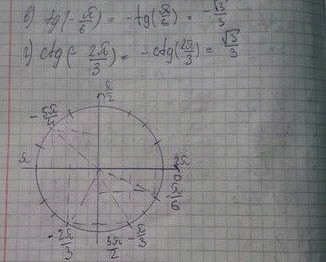 в) tg(-π/6) = -tg(π/6) = -√3/3
г) ctg(-2π/3) = -ctg(2π/3) = √3/3
π/2
-5π/4
π
2π
0
-π/6
-2π/3
3π/2
-π/3